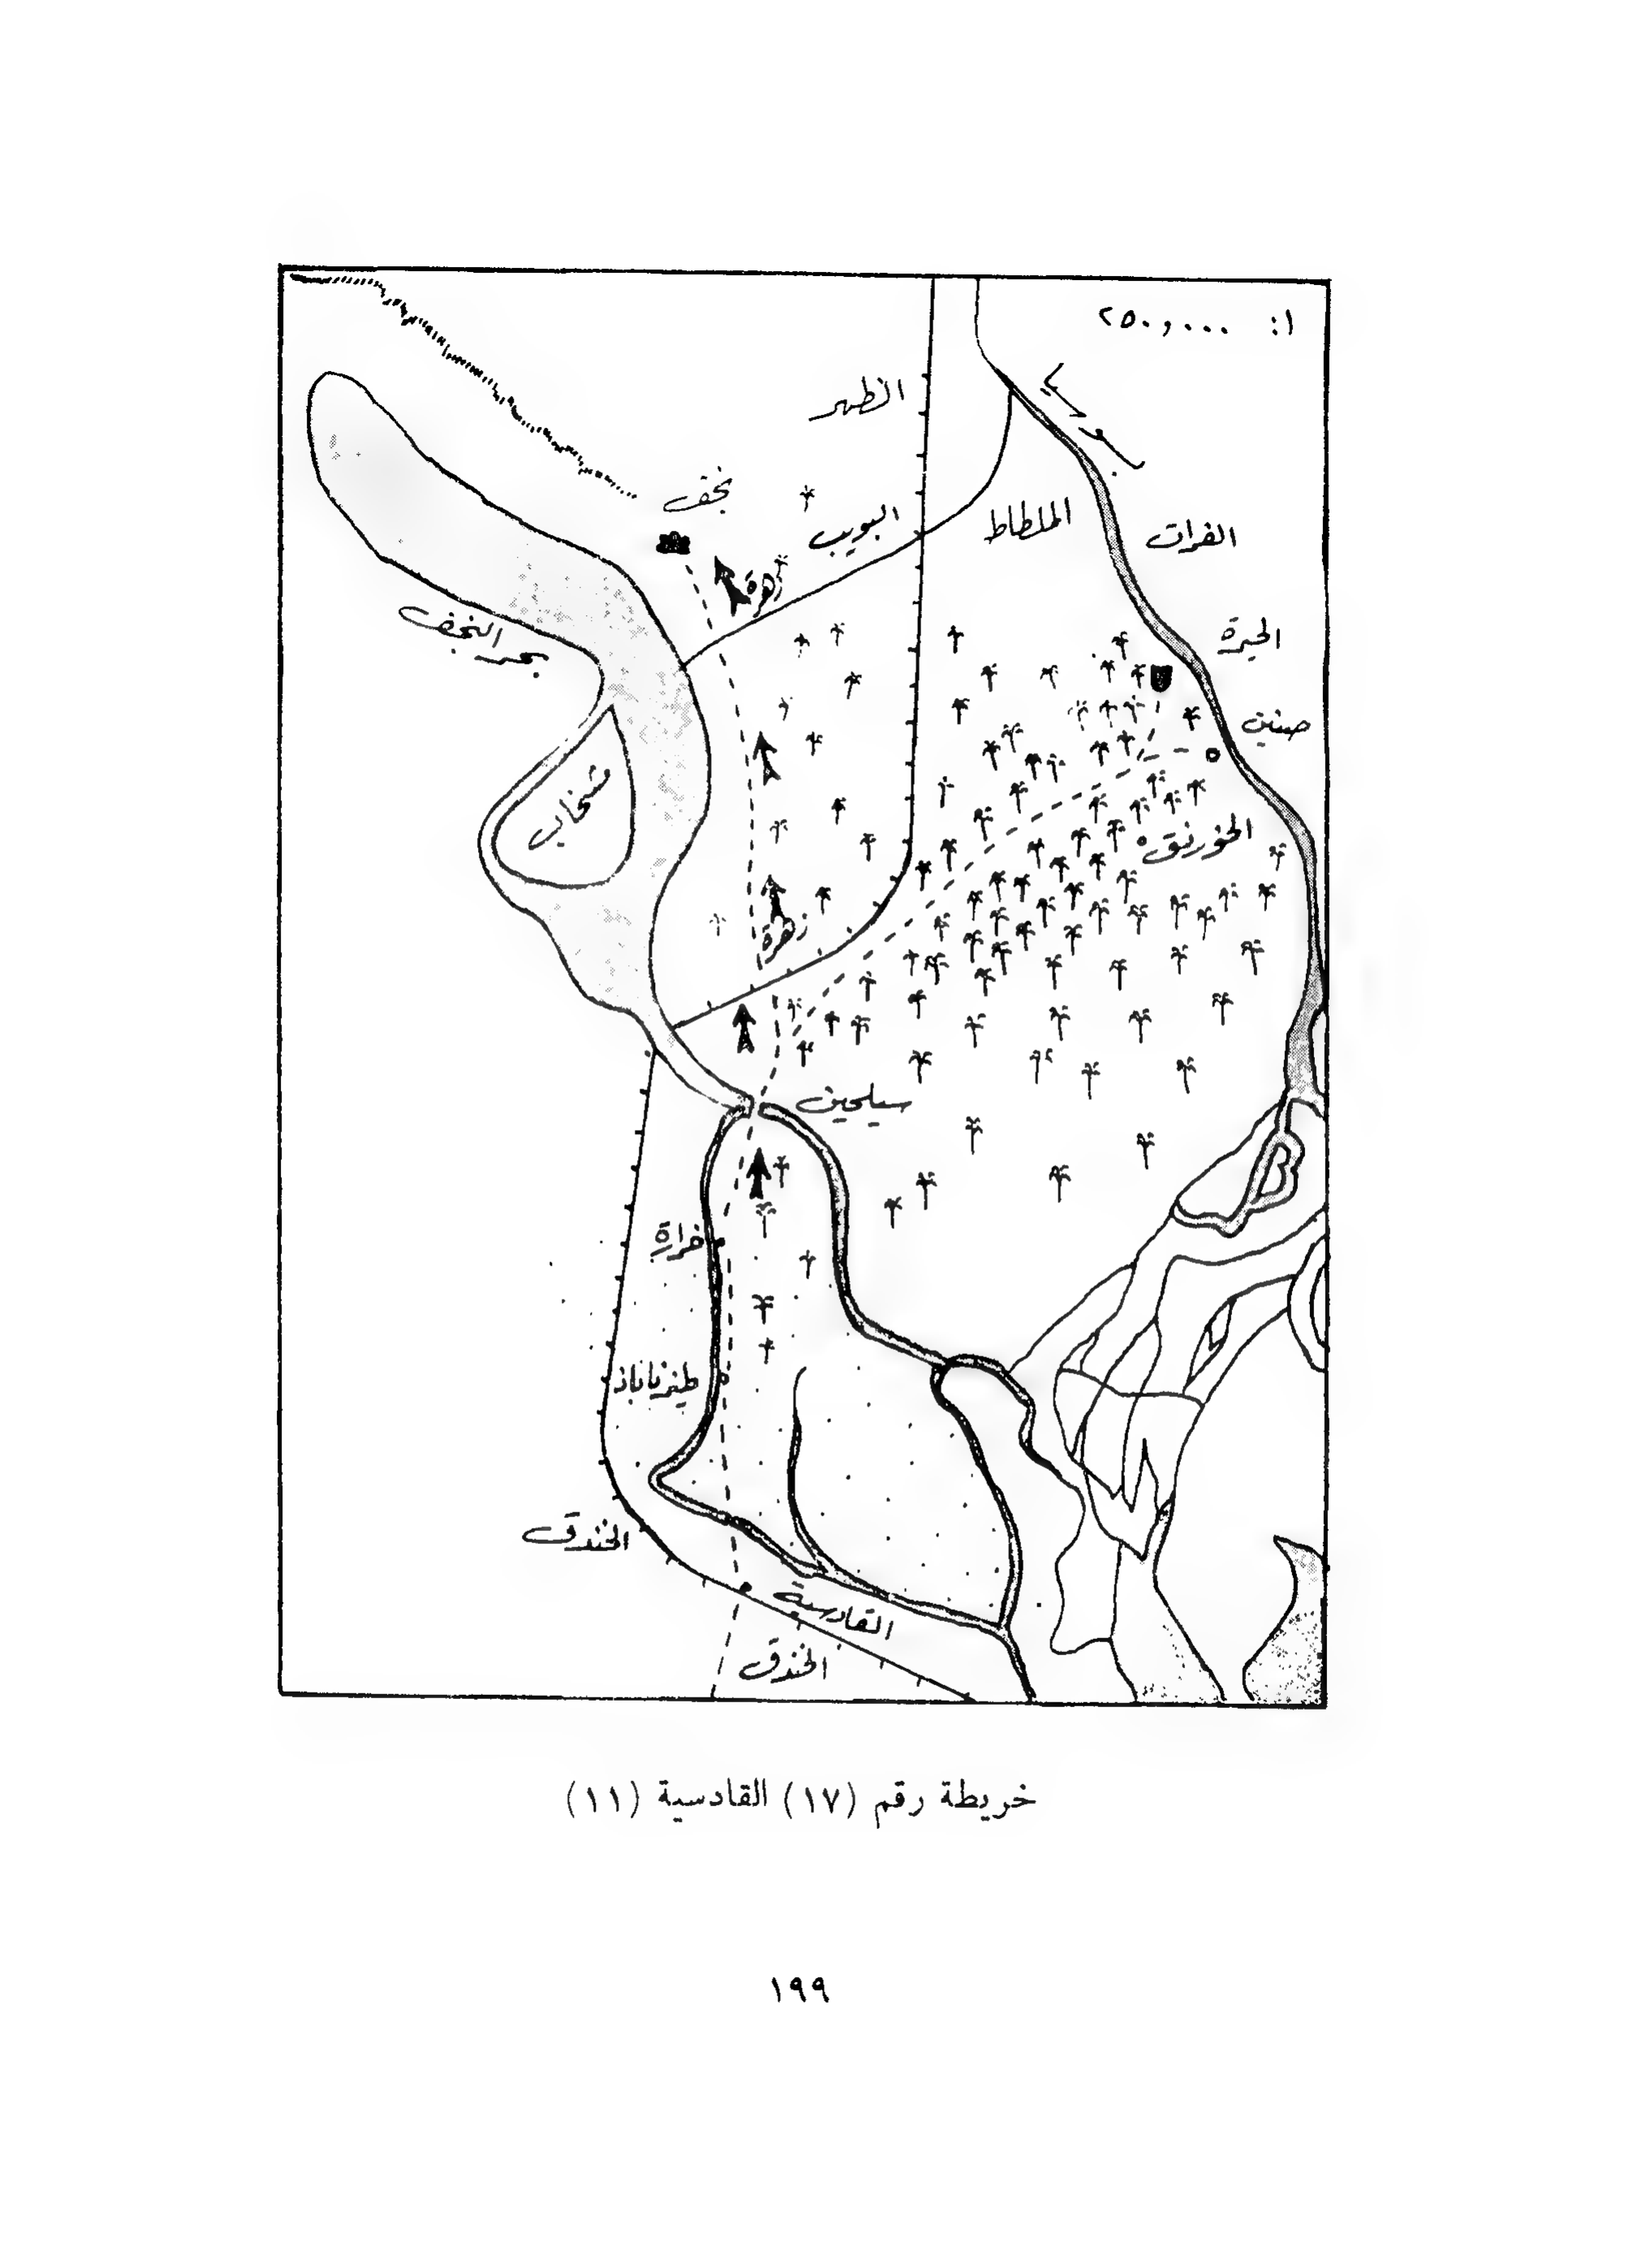 ١: ٢٥٠,٠٠٠
الظهر
نجف
البويب
الملطاط
الفرات
زهرة
بحر النجف
الحيرة
صنين
شخاب
الخورنق
زهرة
سيلحين
خرارة
طيزناباذ
الخندق
القادسية
الخندق
خريطة رقم (١٧) القادسية (١١)
١٩٩